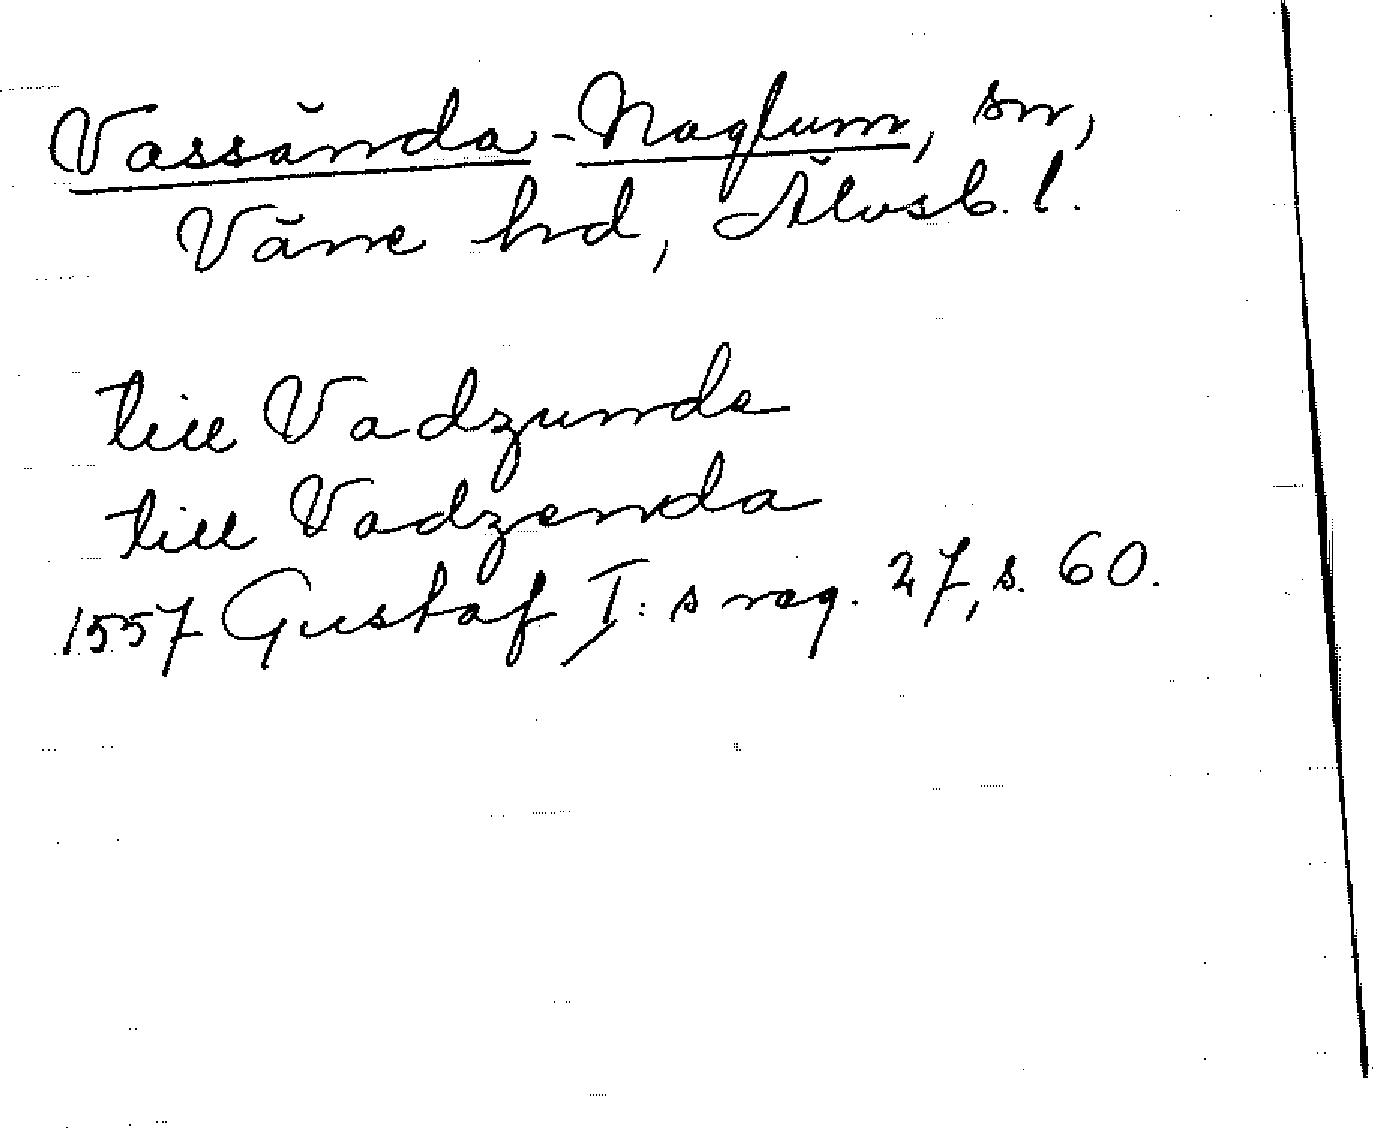 Vassända-Naglum, sn,
Väne hd, Älvsb. l.
till Vadzunde
till Vadzenda
1557 Gustaf I:s reg. 27, s. 60.